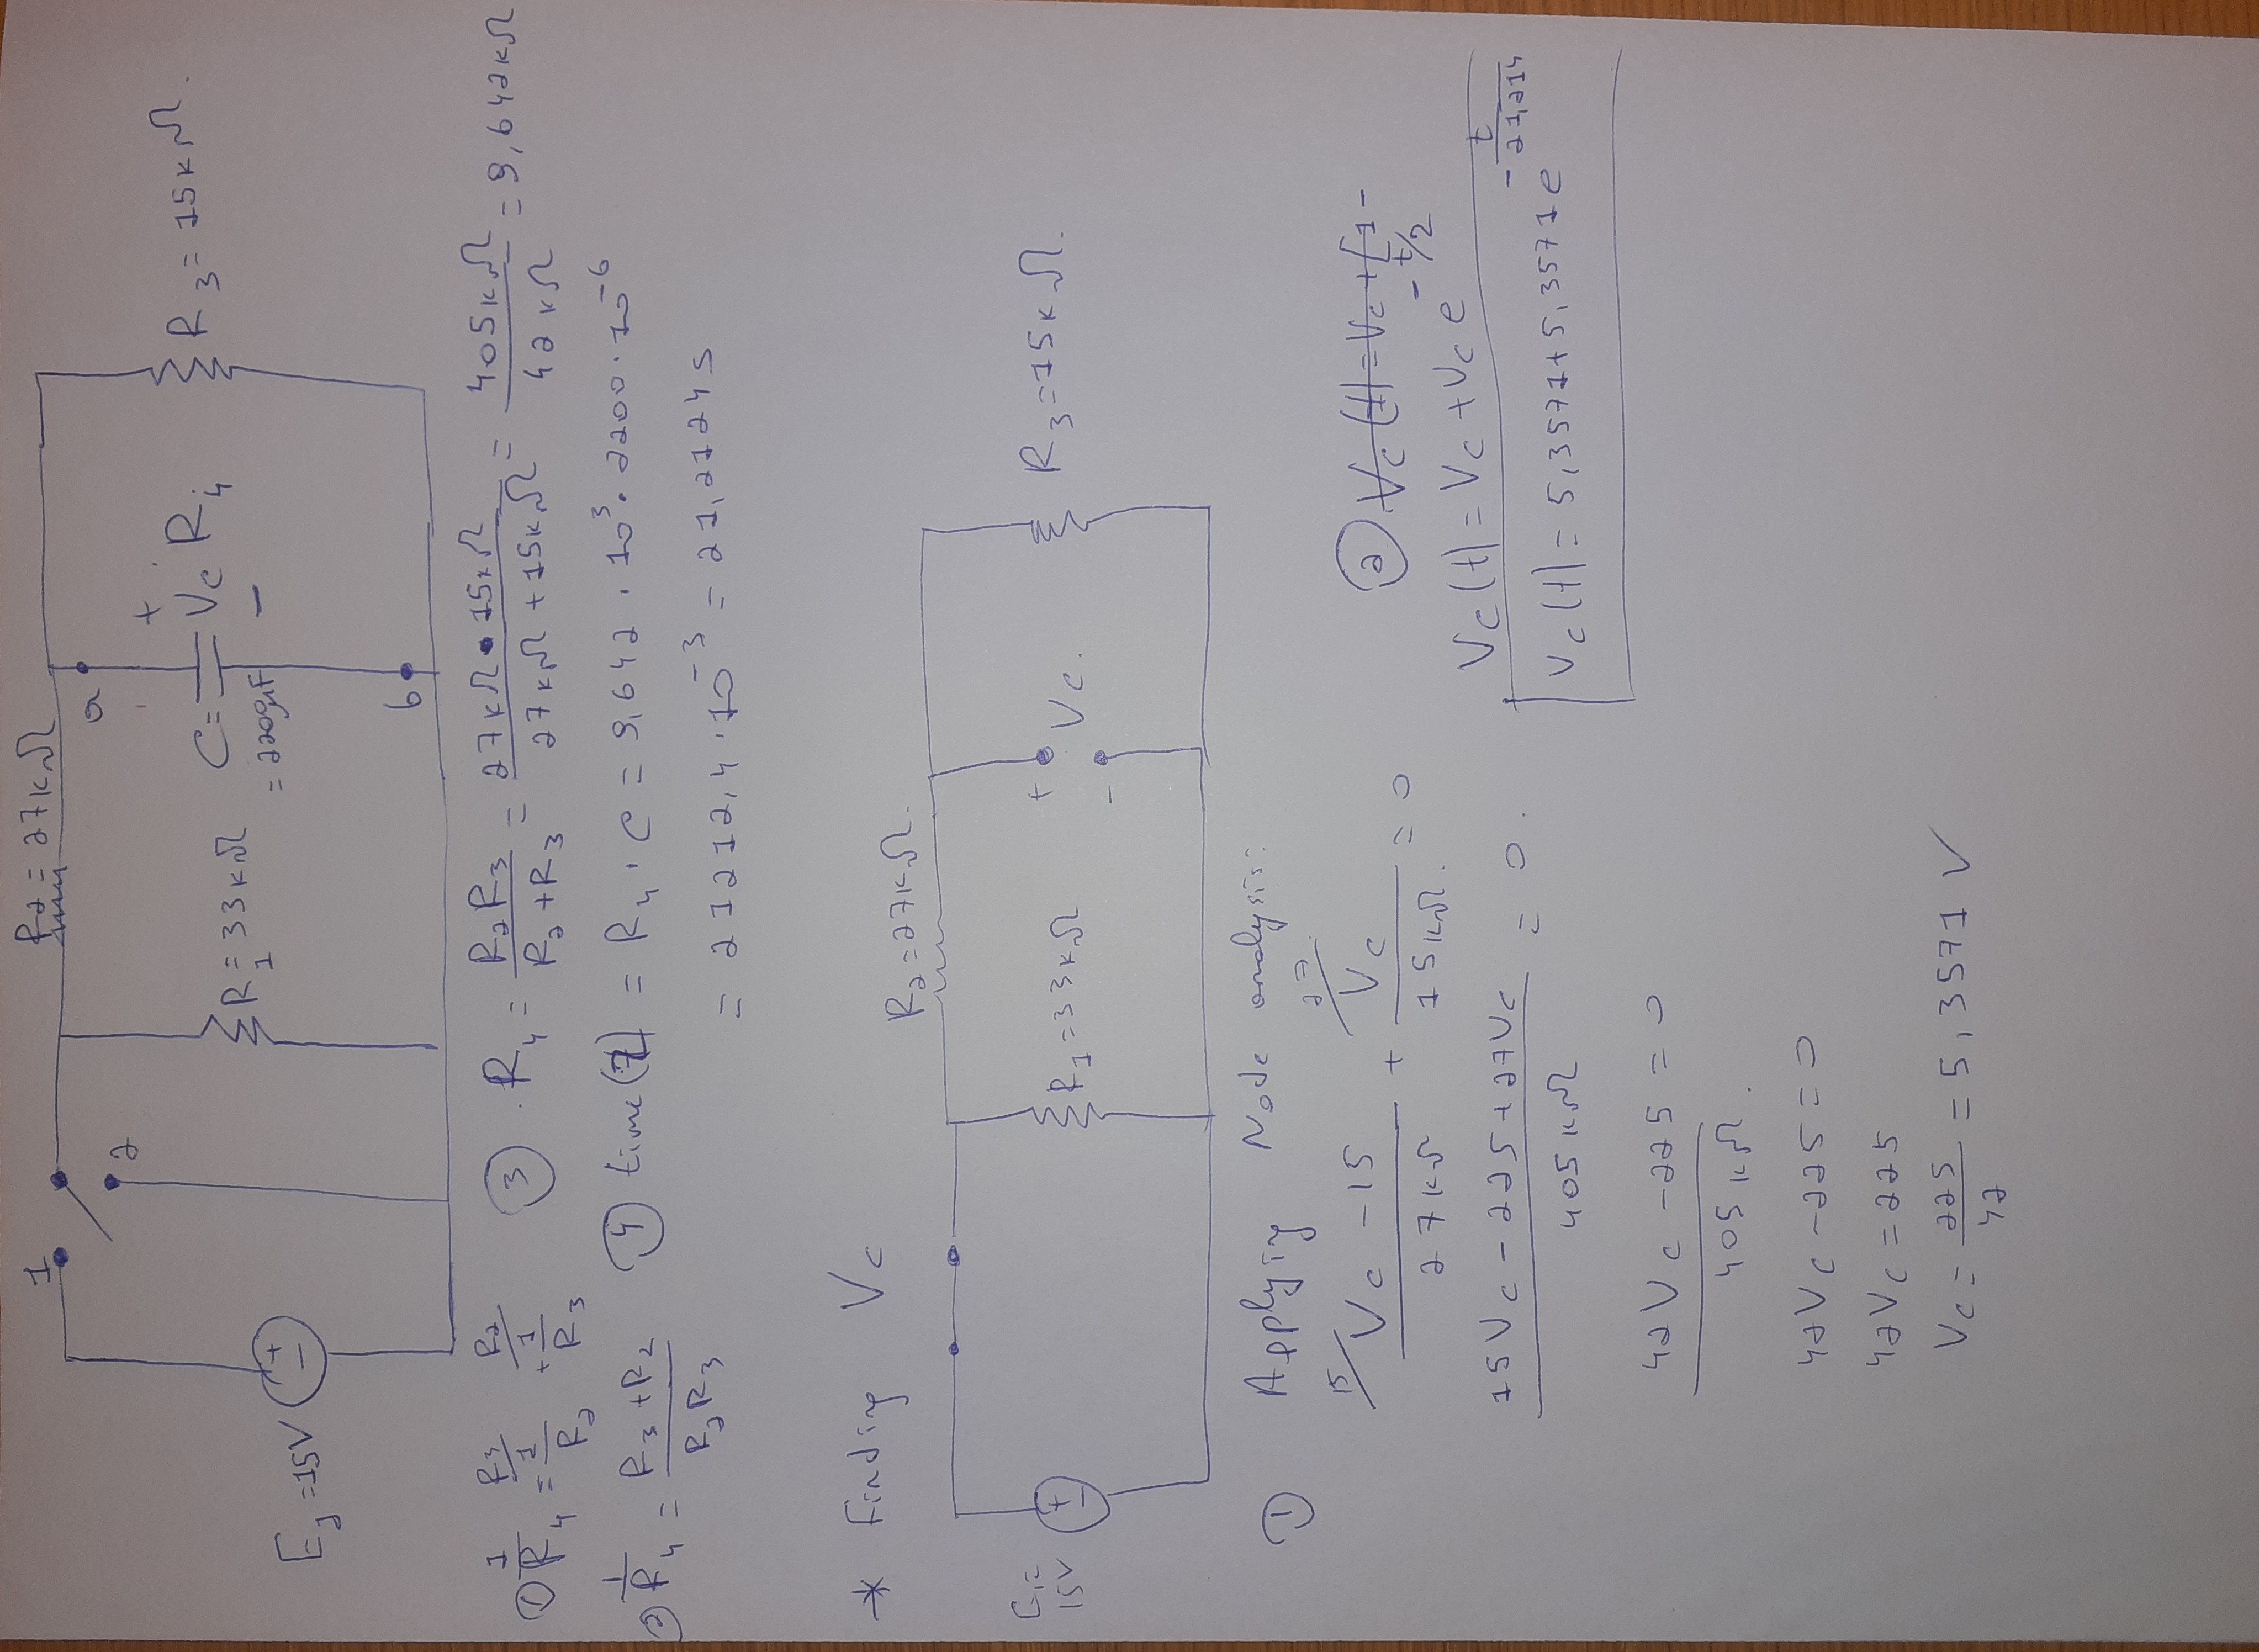 1
R2 = 27kΩ
a
2
+
C= Vc R4 R3 = 15kΩ.
R1 = 33kΩ
= 2209μF
−
E1 =15V + −
b
① 1/R4 = R3/ 1/R2 + R2/ 1/R3
③ . R4 = R2R3 / R2+R3 = 27kΩ • 15kΩ / 27kΩ + 15kΩ = 405kΩ / 42kΩ = 9,642kΩ
② 1/R4 = R3 + R2 / R2R3
④ time(τ) = R4 · C = 9,642 · 10³ · 2200 · 10⁻⁶
= 21212,4 · 10⁻³ = 21,2124 s
* Finding Vc
R2 = 27kΩ.
E1= 15V + −
R1 = 33kΩ
+ Vc. −
R3 = 15kΩ.
① Applying Node analysis:
15/ Vc − 15 / 27kΩ + 27/ Vc / 15kΩ. = 0
15Vc − 225 + 27Vc / 405kΩ = 0.
42Vc − 225 / 405kΩ. = 0
42Vc − 225 = 0
42Vc = 225
Vc = 225/42 = 5,3571 V
② Vc(t) = Vc + [1 −
Vc(t) = Vc + Vc e^−t/2
Vc(t) = 5,3571 + 5,3571 e^−t/21,214